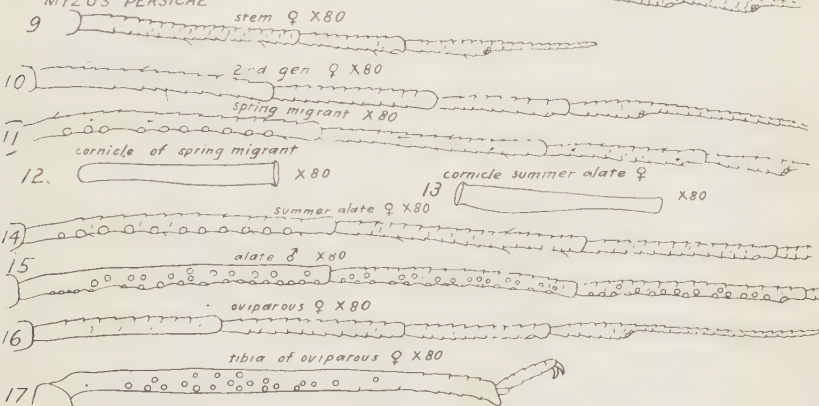 MYZUS PERSICAE
9 stem ♀ X80
10 2nd gen ♀ X80
spring migrant X80
11
cornicle of spring migrant
12. X80
cornicle summer alate ♀
13 X80
summer alate ♀ X80
14
15 alate ♂ X80
oviparous ♀ X80
16
tibia of oviparous ♀ X80
17